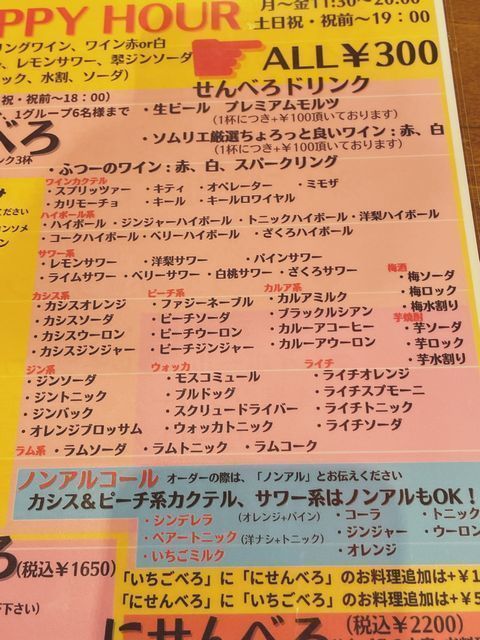 PPY HOUR
月〜金11:30〜20:00
土日祝・祝前〜19:00
リングワイン、ワイン赤or白
、レモンサワー、翠ジンソーダ
ック、水割、ソーダ)
ALL¥300
祝・祝前〜18:00)
、1グループ6名様まで
べろ
ンク3杯
せんべろドリンク
・生ビール プレミアムモルツ
(1杯につき+¥100頂いております)
・ソムリエ厳選ちょろっと良いワイン:赤、白
(1杯につき+¥100頂いております)
・ふつーのワイン:赤、白、スパークリング
ワインカクテル
・スプリッツァー ・キティ ・オペレーター ・ミモザ
・カリモーチョ ・キール ・キールロワイヤル
ハイボール系
・ハイボール ・ジンジャーハイボール ・トニックハイボール ・洋梨ハイボール
・コークハイボール ・ベリーハイボール ・ざくろハイボール
サワー系
・レモンサワー ・洋梨サワー ・パインサワー
・ライムサワー ・ベリーサワー ・白桃サワー ・ざくろサワー
カシス系
・カシスオレンジ
・カシスソーダ
・カシスウーロン
・カシスジンジャー
ピーチ系
・ファジーネーブル
・ピーチソーダ
・ピーチウーロン
・ピーチジンジャー
カルア系
・カルアミルク
・ブラックルシアン
・カルーアコーヒー
・カルーアウーロン
梅酒
・梅ソーダ
・梅ロック
・梅水割り
芋焼酎
・芋ソーダ
・芋ロック
・芋水割り
ジン系
・ジンソーダ
・ジントニック
・ジンバック
・オレンジブロッサム
ウォッカ
・モスコミュール
・ブルドッグ
・スクリュードライバー
・ウォッカトニック
ライチ
・ライチオレンジ
・ライチスプモーニ
・ライチトニック
・ライチソーダ
ラム系 ・ラムソーダ ・ラムトニック ・ラムコーク
ノンアルコール オーダーの際は、「ノンアル」とお伝えください
カシス&ピーチ系カクテル、サワー系はノンアルもOK!
・シンデレラ (オレンジ+パイン)
・ペアートニック (洋ナシ+トニック)
・いちごミルク
・コーラ
・ジンジャー
・オレンジ
・トニック
・ウーロン
ろ(税込¥1650)
下さい)
「いちごべろ」に「にせんべろ」のお料理追加は+¥1
「にせんべろ」に「いちごべろ」のお料理追加は+¥5
にせんべろ(税込¥2200)